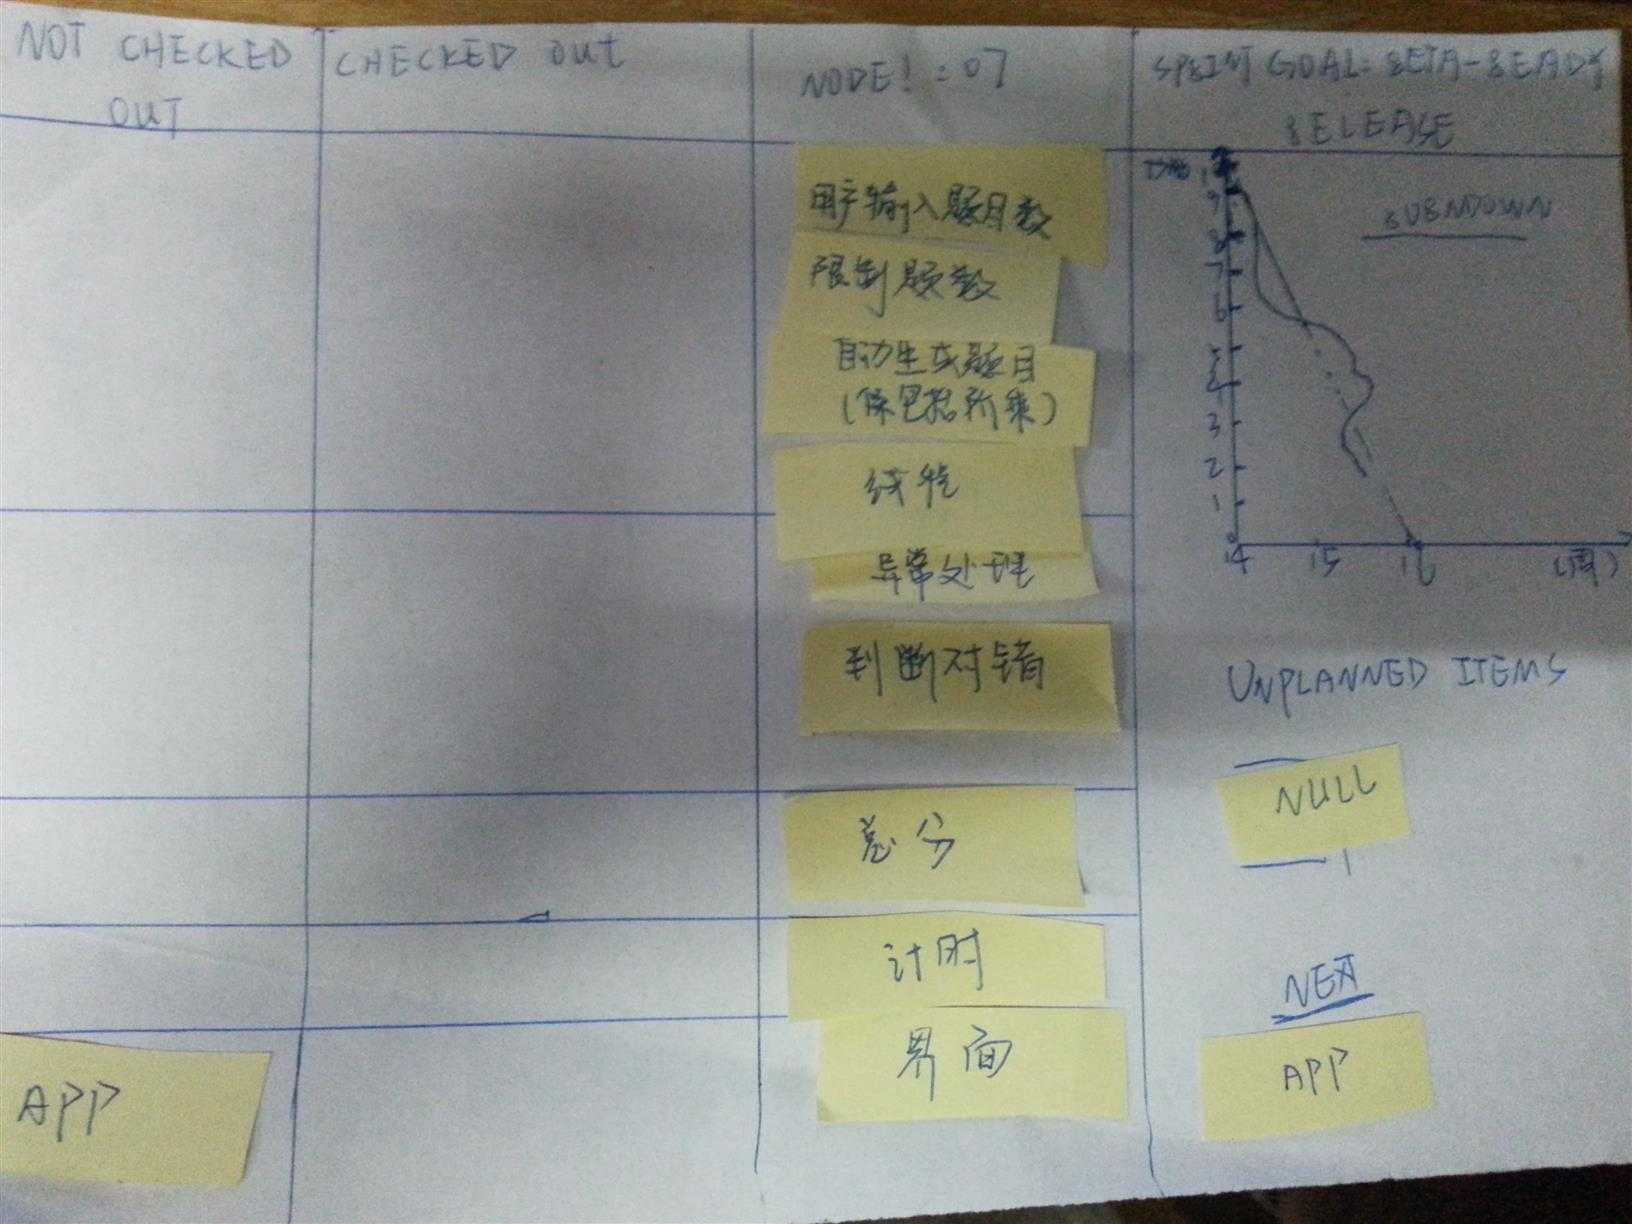 NOT CHECKED
OUT
CHECKED OUT
NODE! = 07
用户输入题目数
限制题数
自动生成题目
(除包括
线性
异常处理
判断对错
总分
计时
界面
APP
GOAL: BETA-READY
RELEASE
9
8
7
6
5
4
3
2
1
0
14
15
16
(周)
UNPLANNED ITEMS
NULL
APP